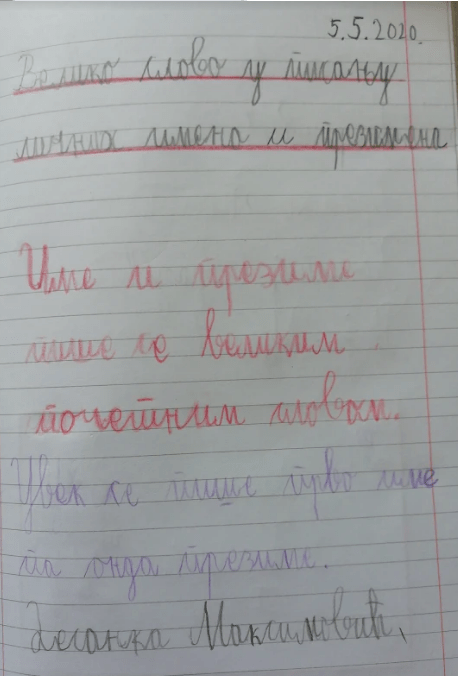 5.5.2020.
Велико слово у писању
личних имена и презимена
Име и презиме
пише се великим
почетним словом.
Увек се пише прво име
па онда презиме.
Десанка Максимовић,